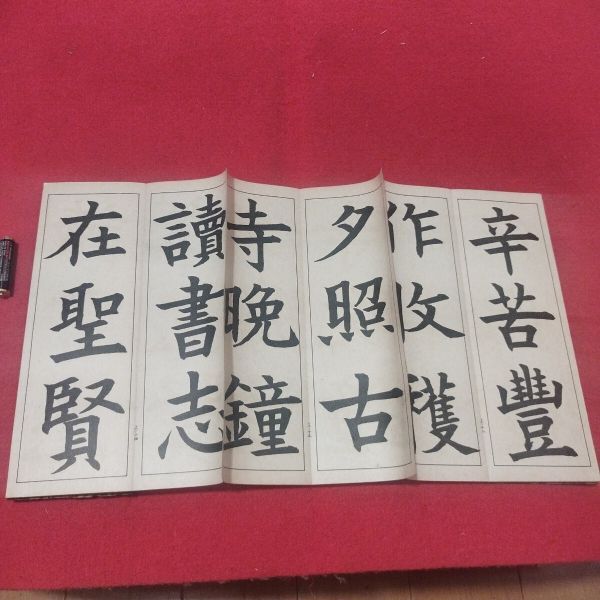 辛苦豐
作收穫
夕照古
寺晩鐘
讀書志
在聖賢